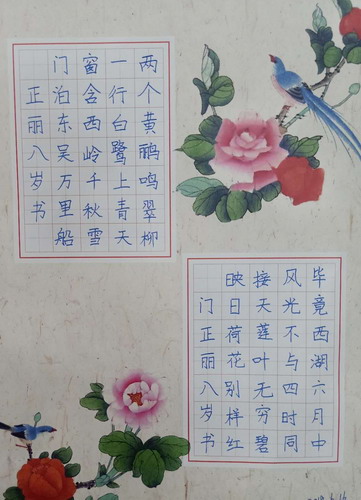 两个黄鹂鸣翠柳
一行白鹭上青天
窗含西岭千秋雪
门泊东吴万里船
正丽八岁书
毕竟西湖六月中
风光不与四时同
接天莲叶无穷碧
映日荷花别样红
门正丽八岁书